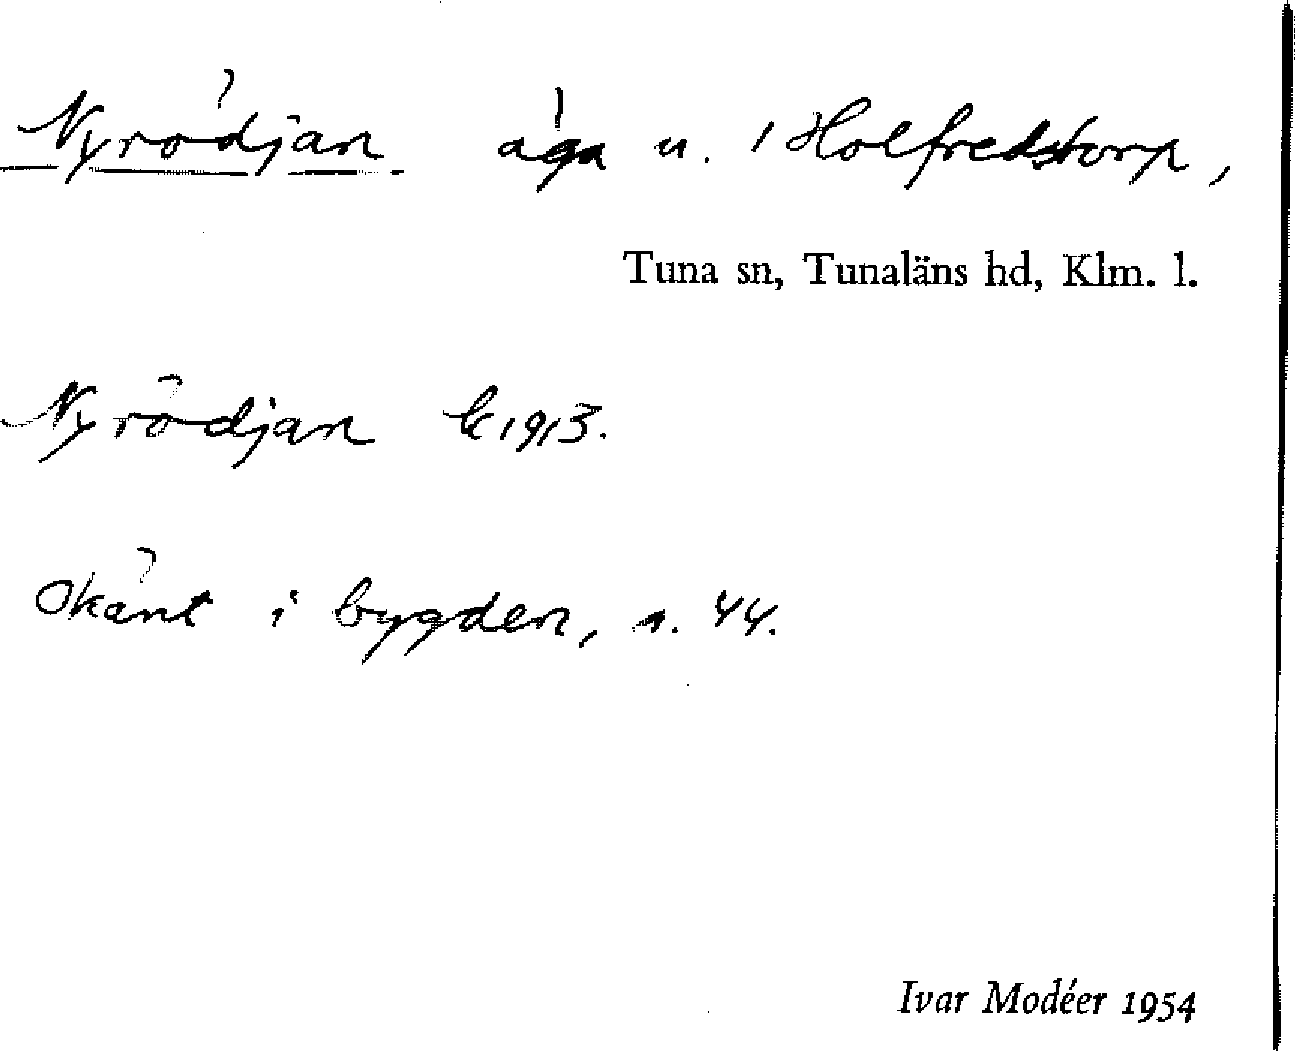 Nyrödjan äga u. 1 Holfredstorp,
Tuna sn, Tunaläns hd, Klm. l.
Nyrödjan k 1913.
Okänt i bygden, s. 44.
Ivar Modéer 1954